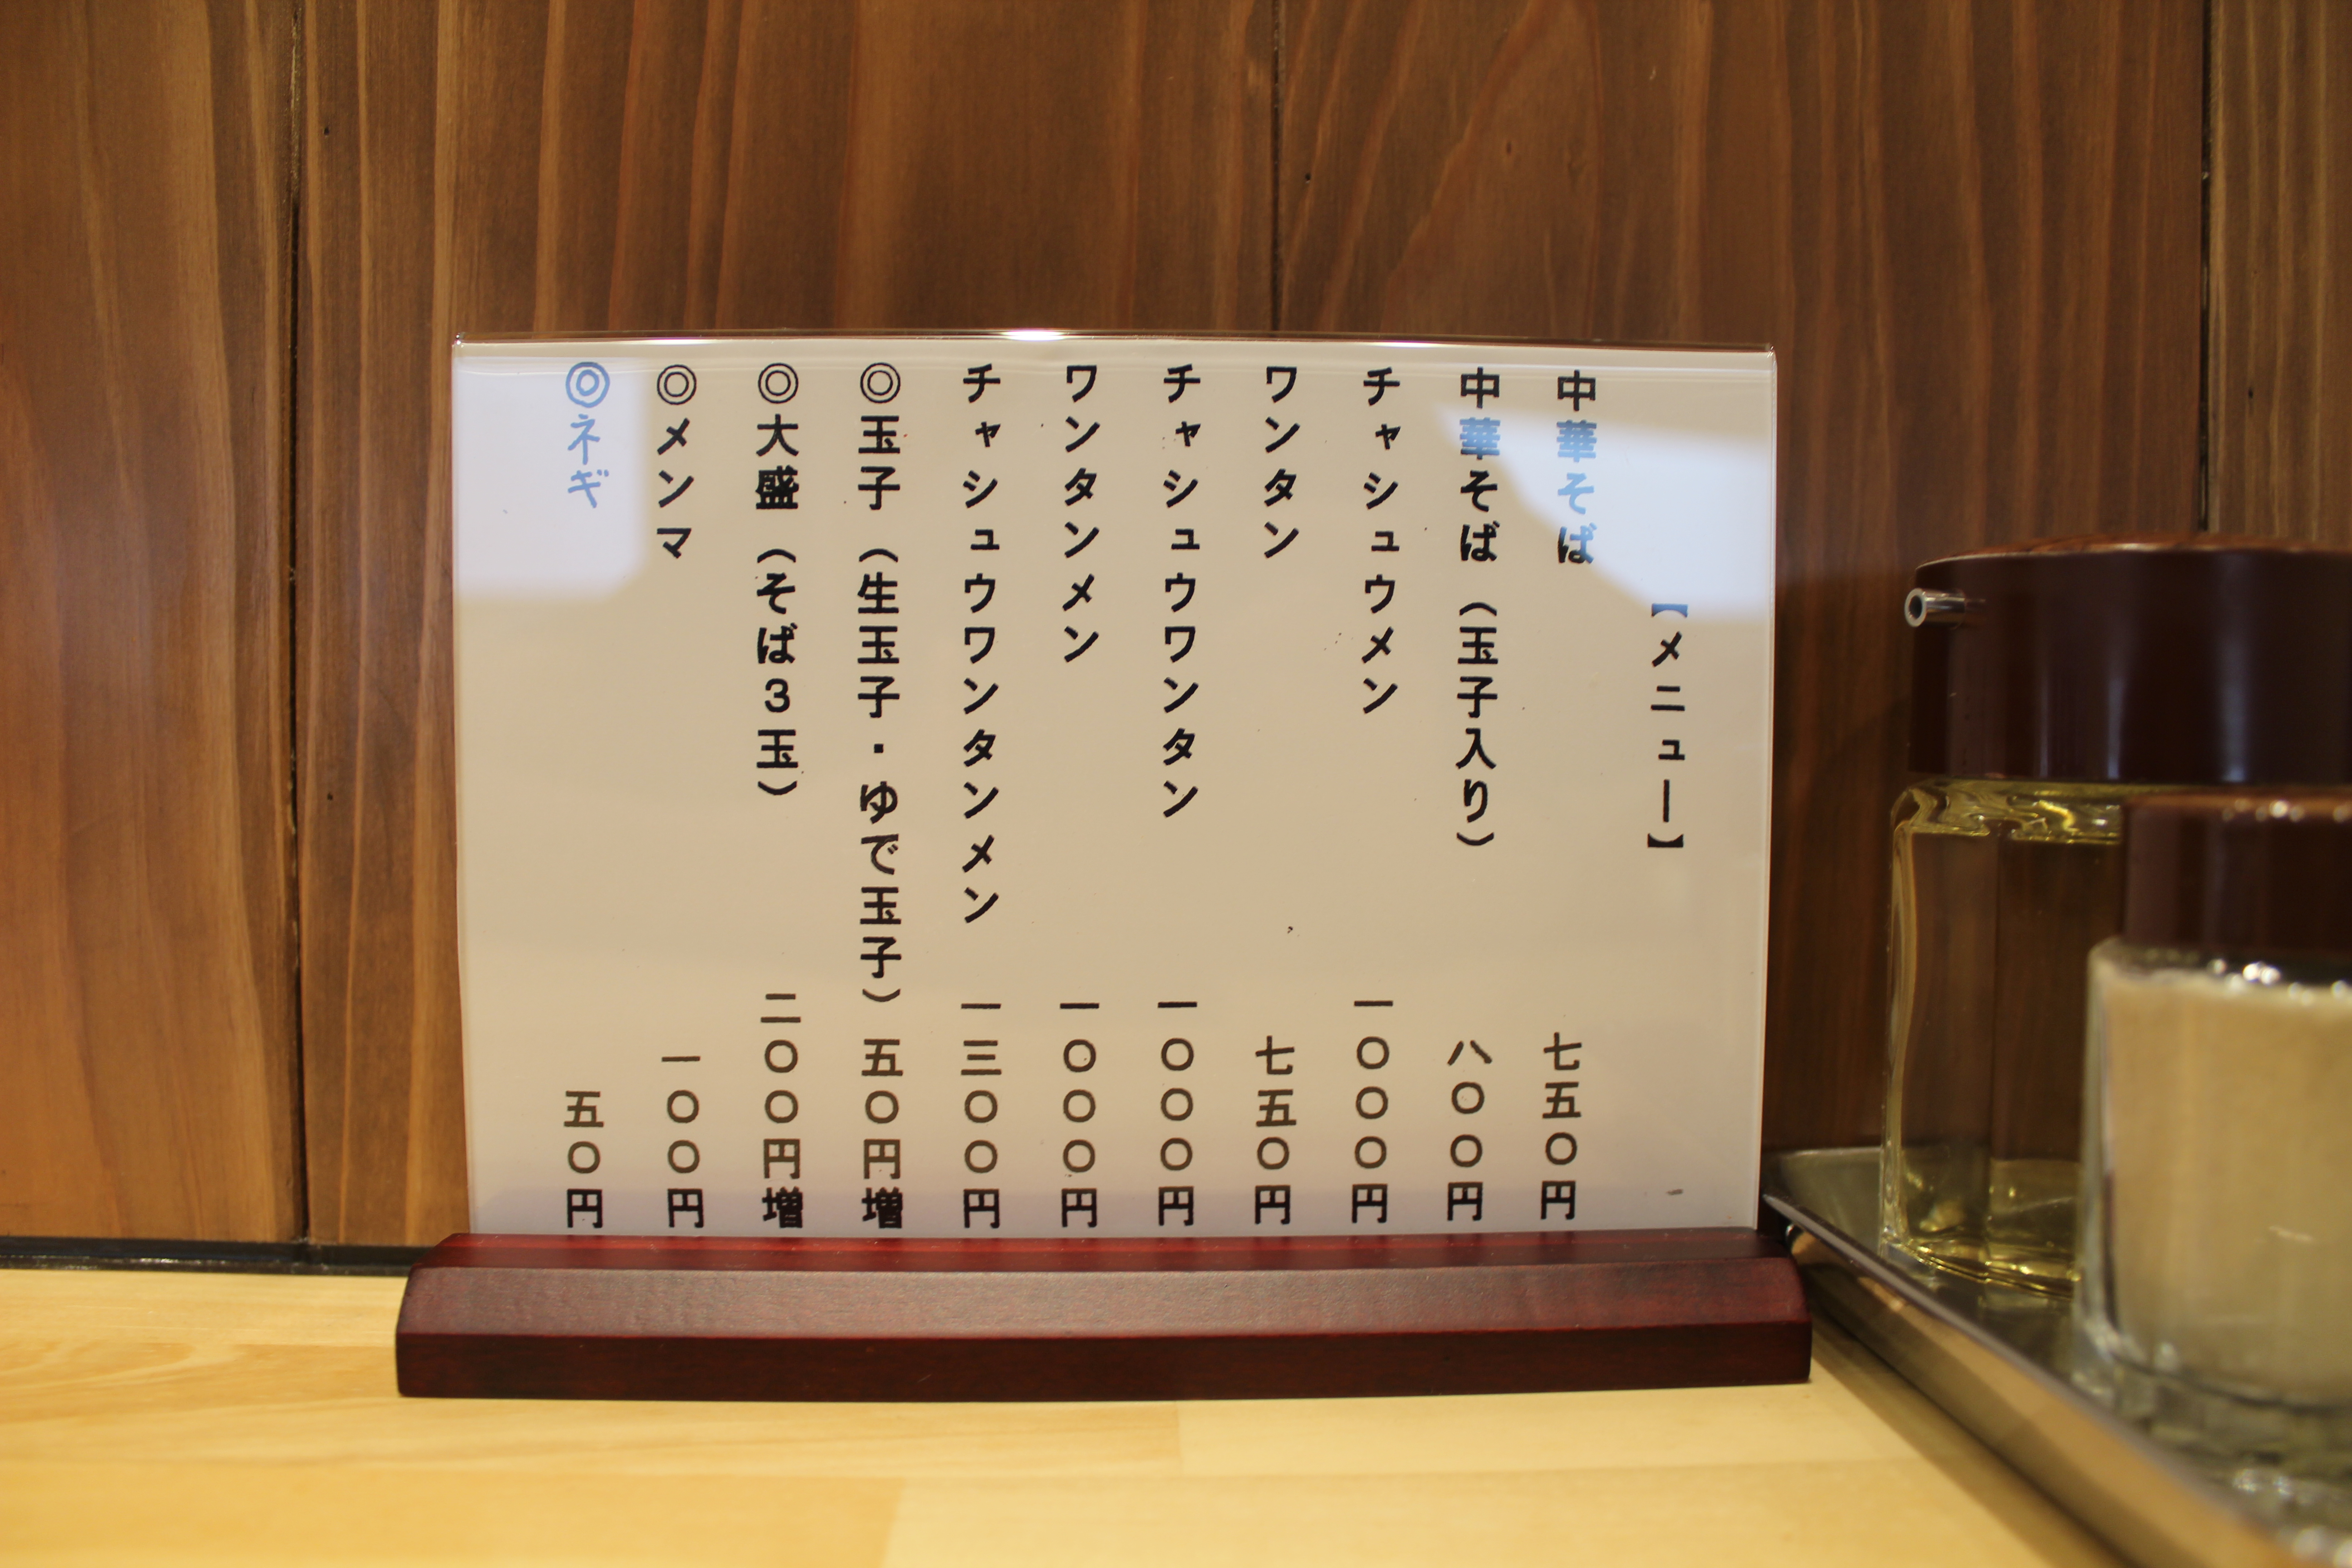 【メニュー】
中華そば 七五〇円
中華そば（玉子入り） 八〇〇円
チャシュウメン 一〇〇〇円
ワンタン 七五〇円
チャシュウワンタン 一〇〇〇円
ワンタンメン 一〇〇〇円
チャシュウワンタンメン 一三〇〇円
◎玉子（生玉子・ゆで玉子） 五〇円増
◎大盛（そば3玉） 二〇〇円増
◎メンマ 一〇〇円
◎ネギ 五〇円